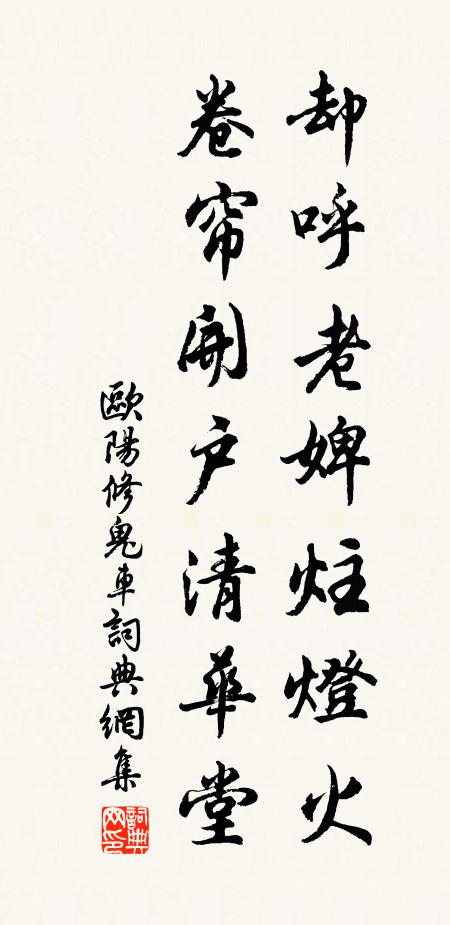 却呼老婢炷燈火
卷帘開户清華堂
歐陽修鬼車詞典網集
詞典网印